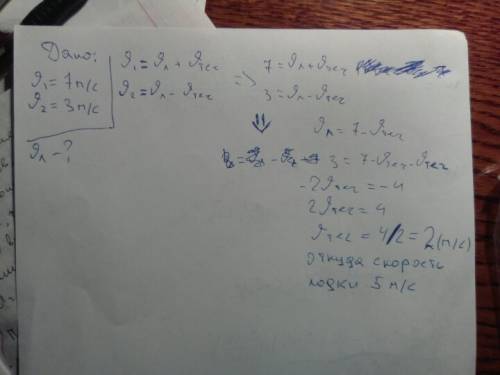 Дано:
υ₁ = 7 м/с
υ₂ = 3 м/с
υл - ?
υ₁ = υл + υтеч
υ₂ = υл - υтеч
=> 7 = υл + υтеч
3 = υл - υтеч
⇓
υл = 7 - υтеч
3 = 7 - υтеч - υтеч
-2υтеч = -4
2υтеч = 4
υтеч = 4/2 = 2 (м/с)
откуда скорость
лодки 5 м/с